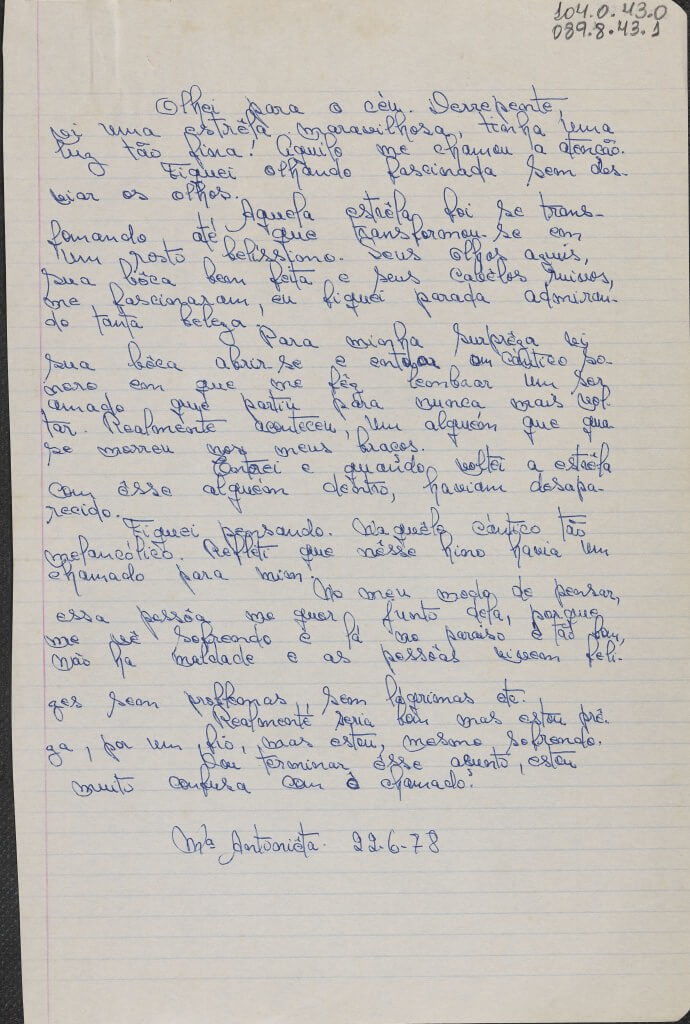 104.0.43.0
089.8.43.1
Olhei para o céu. Derrepente,
vi uma estrêla maravilhosa, tinha uma
luz tão fina! Aquilo me chamou a atenção.
Fiquei olhando fascinada sem des-
viar os olhos.
Aquela estrêla foi se trans-
fomando até que transformou-se em
um rosto belissimo. Seus olhos azuis,
sua bôca bem feita e seus cabêlos ruivos,
me fascinaram, eu fiquei parada admiran-
do tanta beleza.
Para minha surprêza vi
sua bôca abrir-se e entoar um cântico so-
noro em que me fêz lembrar um ser
amado que partiu para nunca mais vol-
tar. Realmente aconteceu, um alguém que qua
se morreu nos meus braços.
Entrei e quando voltei a estrêla
com êsse alguém dentro, haviam desapa-
recido.
Fiquei pensando. Naquêle cântico tão
melancólico. Refleti que nêsse hino havia um
chamado para mim.
No meu modo de pensar,
essa pessôa me quer junto dela, porque
me vê sofrendo e lá no paraiso é tão bom,
não ha maldade e as pessôas vivem feli-
zes sem problemas, sem lágrimas etc.
Realmente seria bom mas estou prê-
za, por um fio, mas estou, mesmo sofrendo.
Vou terminar êsse asunto, estou
muito confusa com o chamado!
Mª Antoniêta. 22-6-78